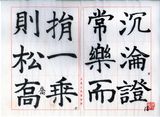 沉淪證
常樂而
捐一乘
則松高